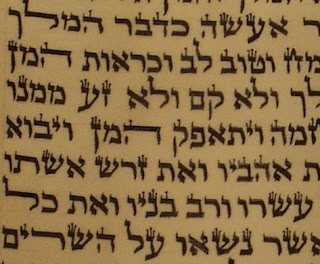 ר אעשה כדבר המלך
מח וטוב לב וכראות המן
לך ולא קם ולא זע ממנו
מה ויתאפק המן ויבוא
ת אהביו ואת זרש אשתו
עשרו ורב בניו ואת כל
אשר נשאו על השרים